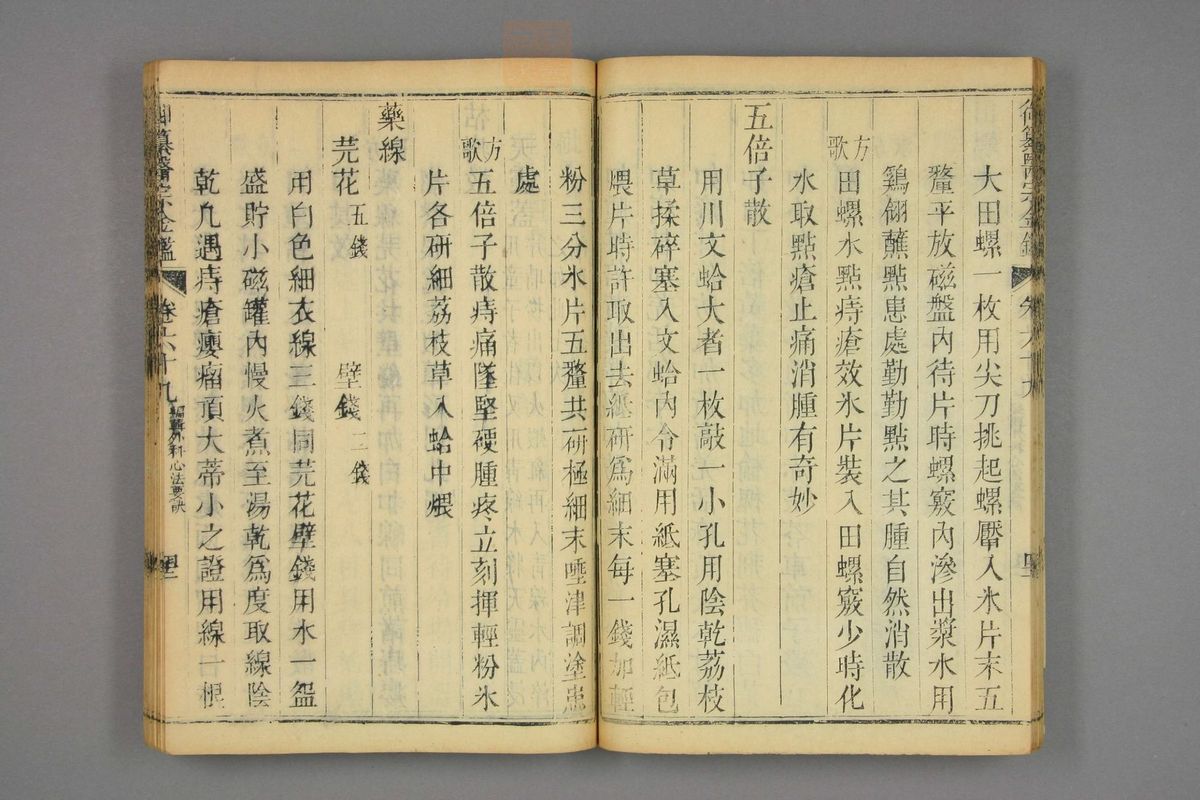 大田螺一枚用尖刀挑起螺靨入氷片末五
釐平放磁盤內待片時螺竅內滲出漿水用
鷄翎蘸點患處勤勤點之其腫自然消散
方歌
田螺水點痔瘡效氷片裝入田螺竅少時化
水取點瘡止痛消腫有奇妙
五倍子散
用川文蛤大者一枚敲一小孔用陰乾荔枝
草揉碎塞入文蛤內令滿用紙塞孔濕紙包
煨片時許取出去紙研爲細末每一錢加輕
粉三分氷片五釐共研極細末唾津調塗患
處
方歌
五倍子散痔痛墜堅硬腫疼立刻揮輕粉氷
片各研細荔枝草入蛤中煨
藥線
芫花五錢 壁錢二錢
用白色細衣線三錢同芫花壁錢用水一盌
盛貯小磁罐內慢火煮至湯乾爲度取線陰
乾凡遇痔瘡癭瘤頂大蒂小之證用線一根
醫宗金鑑 卷六十九 編輯外科心法要訣